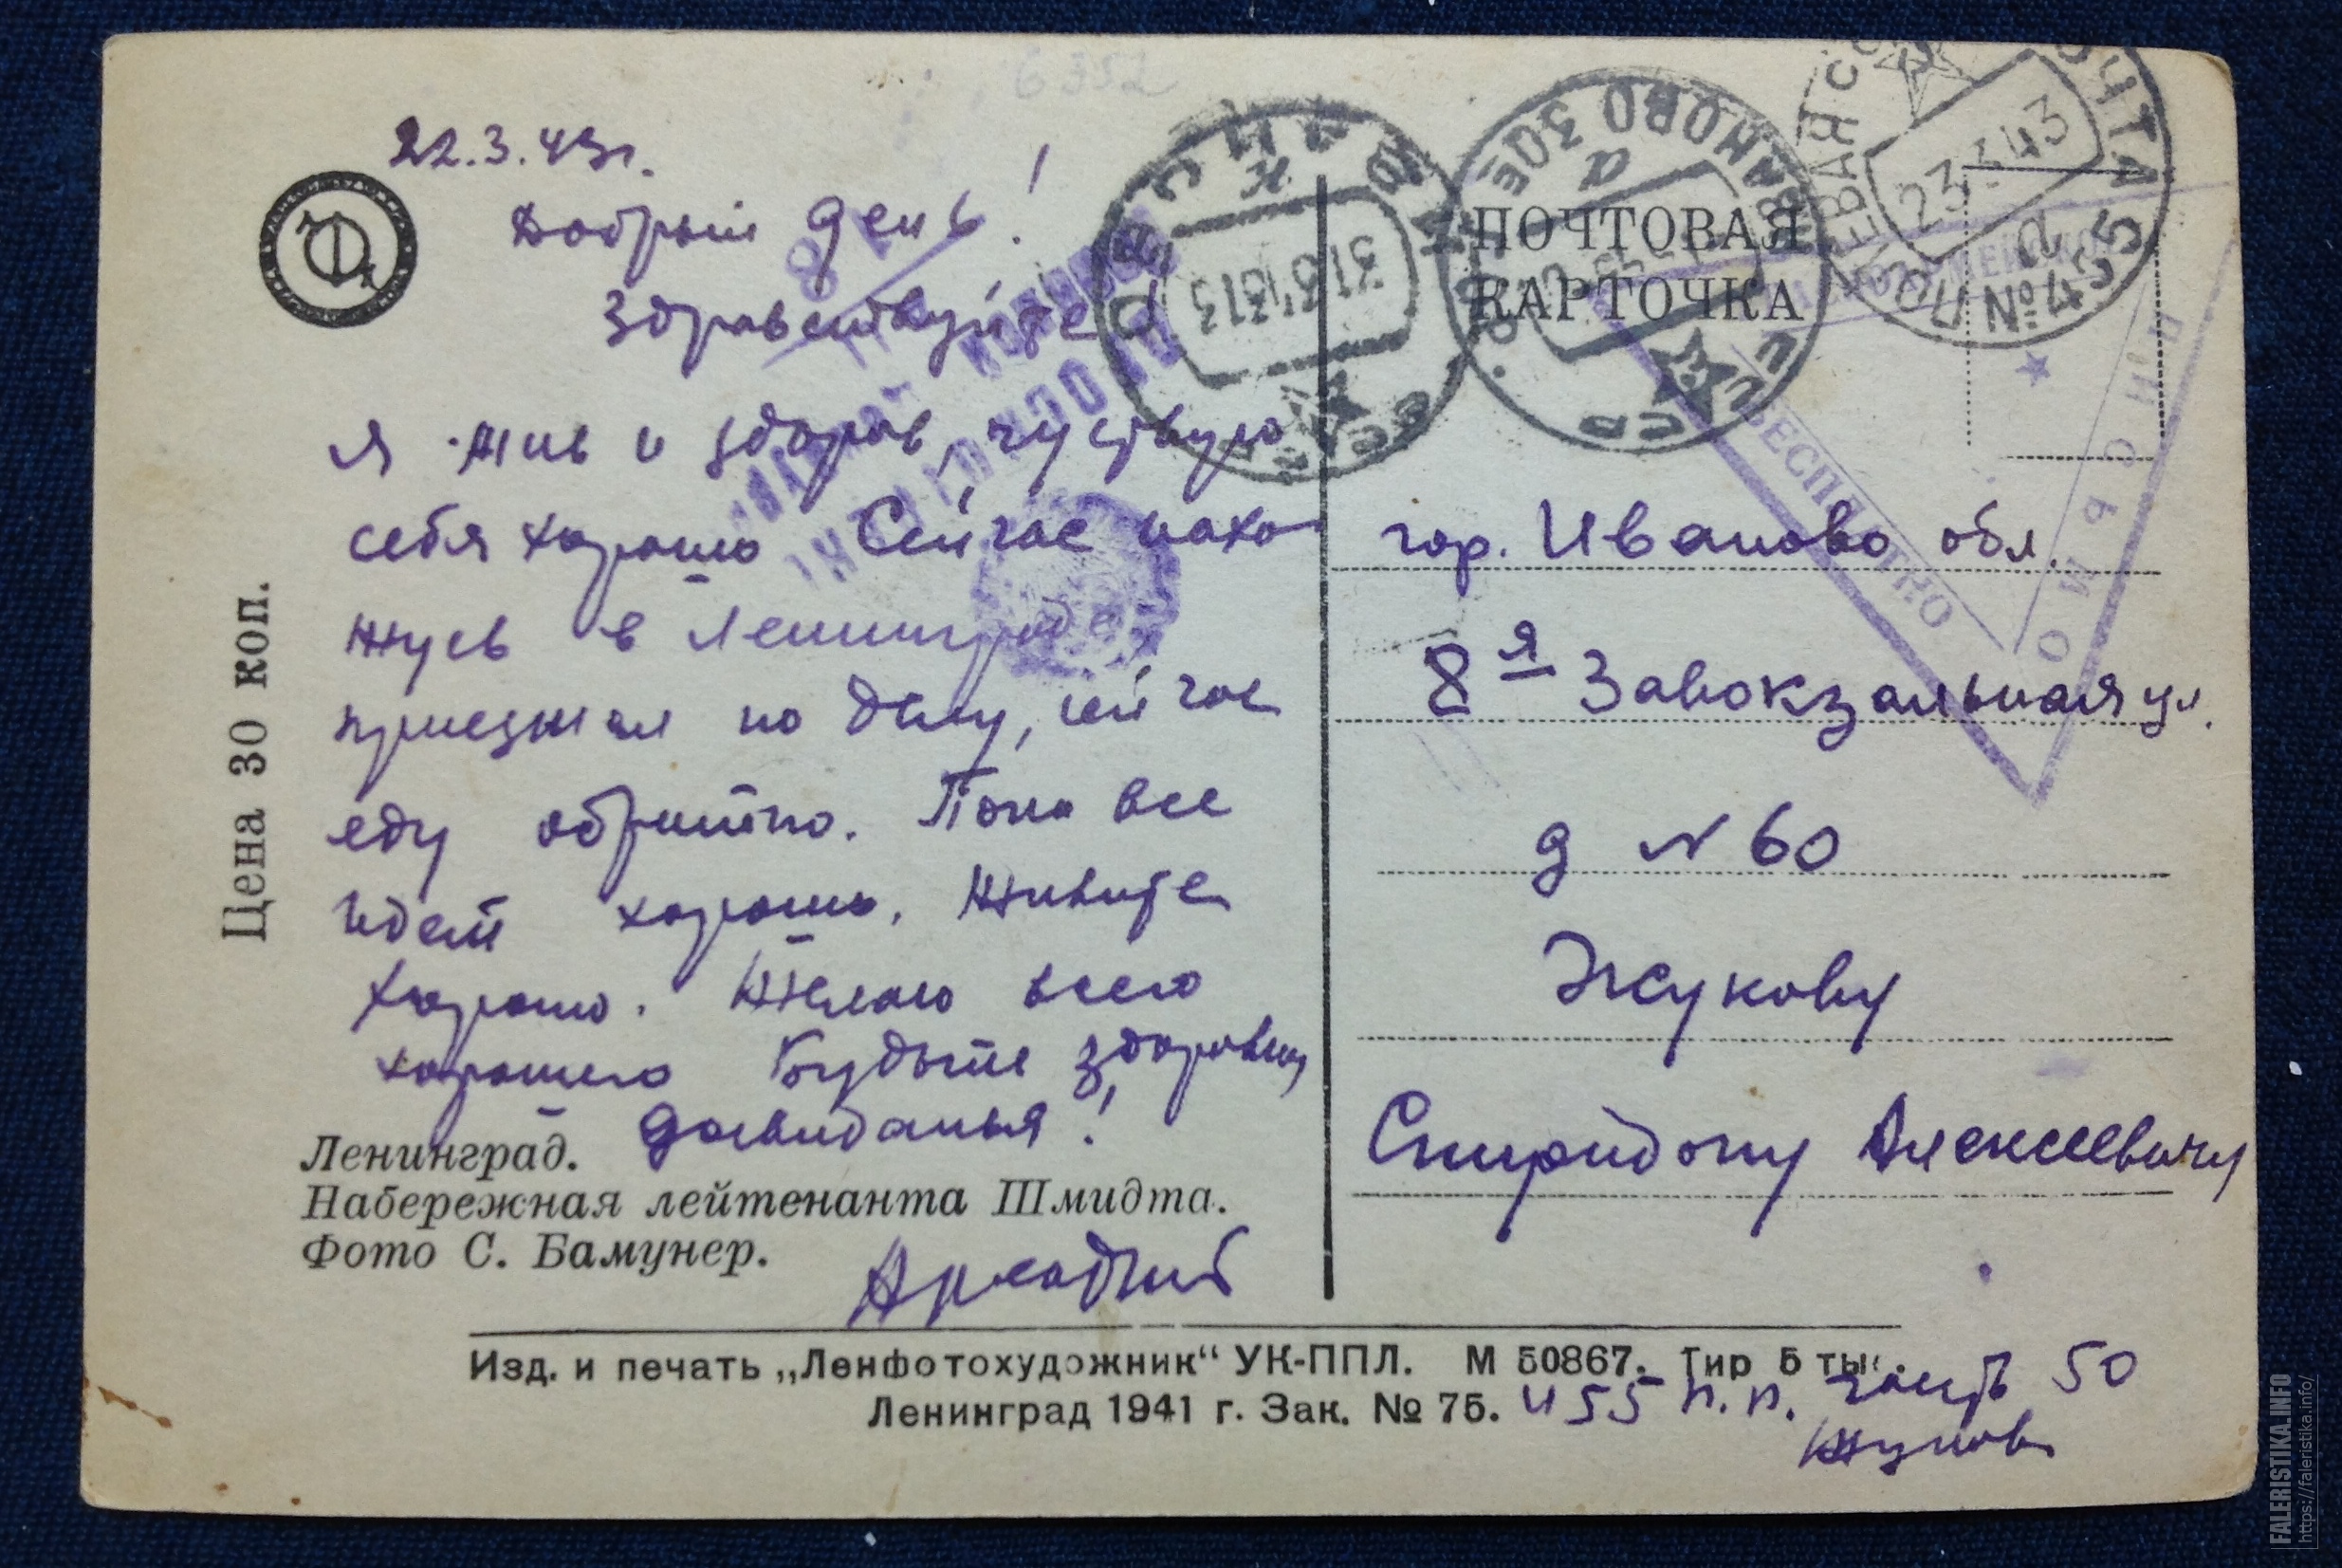 6352
22.3.43г.
Добрый день!
Здравствуйте!
Я жив и здоров, чуствую
себя хорошо Сейчас нахо
жусь в Ленинграде
приезжал по делу, сейчас
еду обратно. Пока все
идет хорошо. Живите
хорошо. Желаю всего
хорошего Будьте здоровы,
досвиданья!
Аркадий
Цена 30 коп.
Ленинград.
Набережная лейтенанта Шмидта.
Фото С. Бамунер.
ПОЧТОВАЯ
КАРТОЧКА
гор. Иваново обл.
8я Завокзальная ул.
д № 60
Жукову
Спиридону Алексеевичу
Изд. и печать „Ленфотохудожник“ УК-ППЛ. М 50867. Тир 5 тыс.
Ленинград 1941 г. Зак. № 75.
455 п.п. часть 50
Жуков
ИВАНОВО ЗОБЛ
а
СССР
31 3 43 13
ПОЛЕВАЯ ПОЧТА
№ 455
а
23 3 43
КРАСНОАРМЕЙСКОЕ
ПИСЬМО
БЕСПЛАТНО
FALERISTIKA.INFO
https://faleristika.info/